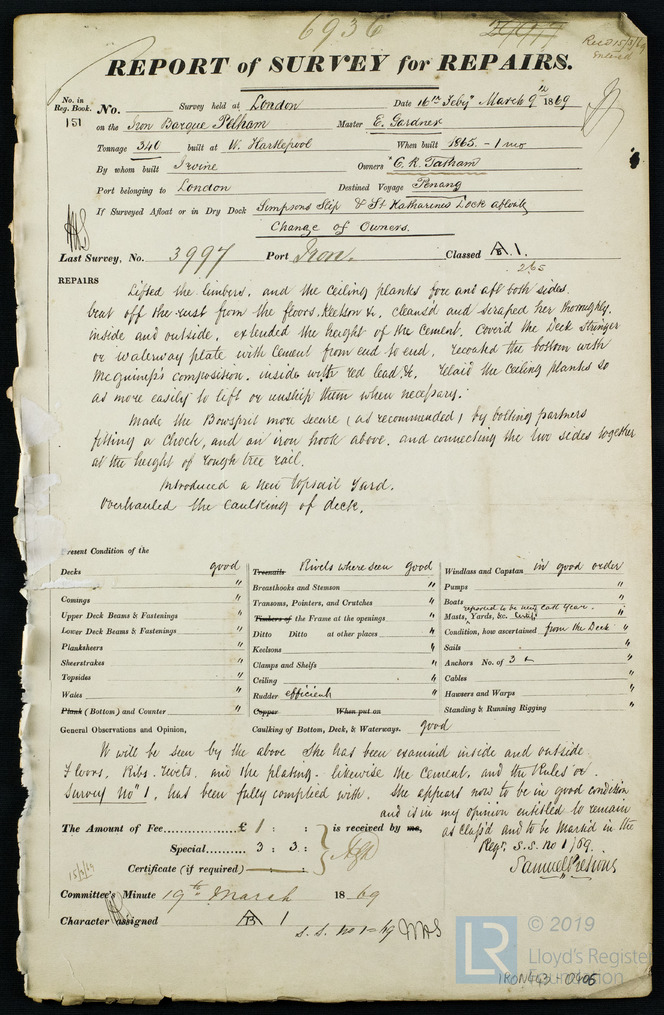 6936
Recd 15/3/69
REPORT of SURVEY for REPAIRS.
No. in Reg. Book. No. Survey held at London Date 16th Feby March 9th 1869
151 on the Iron Barque Pelham Master E. Gardner
Tonnage 340 built at W. Hartlepool When built 1865. - 1 mo
By whom built Irvine Owners C. R. Tatham
Port belonging to London Destined Voyage Penang
If Surveyed Afloat or in Dry Dock Simpsons Slip & St Katharines Dock afloat
Change of Owners.
Last Survey, No. 3997 Port Iron. Classed A B 1.
2/65
REPAIRS Lifted the limbers, and the ceiling planks fore and aft both sides.
beat off the rust from the floors, Keelson &c, cleansd and scraped her thoroughly.
inside and outside, extended the height of the cement. Cover'd the Deck Stringer
or waterway plate with Cement from end to end, recoated the bottom with
McGuimp's composition. inside with red lead &c. relaid the ceiling planks so
as more easily to lift or unship them when necessary.
Made the Bowsprit more secure (as recommended) by bolting partners
fitting a chock, and an iron hook above, and connecting the two sides together
at the height of rough tree rail.
Introduced a new topsail Yard.
Overhauled the caulking of deck.
Present Condition of the
Decks good
Comings "
Upper Deck Beams & Fastenings "
Lower Deck Beams & Fastenings "
Planksheers "
Sheerstrakes "
Topsides "
Wales "
Plank (Bottom) and Counter "
Treenails Rivets where seen good
Breasthooks and Stemson "
Transoms, Pointers, and Crutches "
Timbers of the Frame at the openings "
Ditto Ditto at other places "
Keelsons "
Clamps and Shelfs "
Ceiling "
Rudder efficient "
Copper When put on
Windlass and Capstan in good order
Pumps "
Boats "
reported to be
Masts, Yards, &c. "
Condition, how ascertained from the Deck "
Sails "
Anchors No. of 3 "
Cables "
Hawsers and Warps "
Standing & Running Rigging "
General Observations and Opinion, Caulking of Bottom, Deck, & Waterways. good
It will be seen by the above She has been examind inside and outside
Floors, Ribs, rivets, and the plating - likewise the cement, and the Rules or
Survey No 1, has been fully complied with. She appears now to be in good condition
and is in my opinion entitled to remain
as class'd and to be Mark'd in the
Regr. S.S. no 1/69.
The Amount of Fee £ 1 : : is received by me,
Special 3 : 3 :
Certificate (if required) : :
15/3/69
Samuel Pretious
Committee's Minute 19th March 1869
Character assigned A B 1
S.S. no 1-69
LR © 2019
Lloyd's Register
Foundation
IRON443-0405